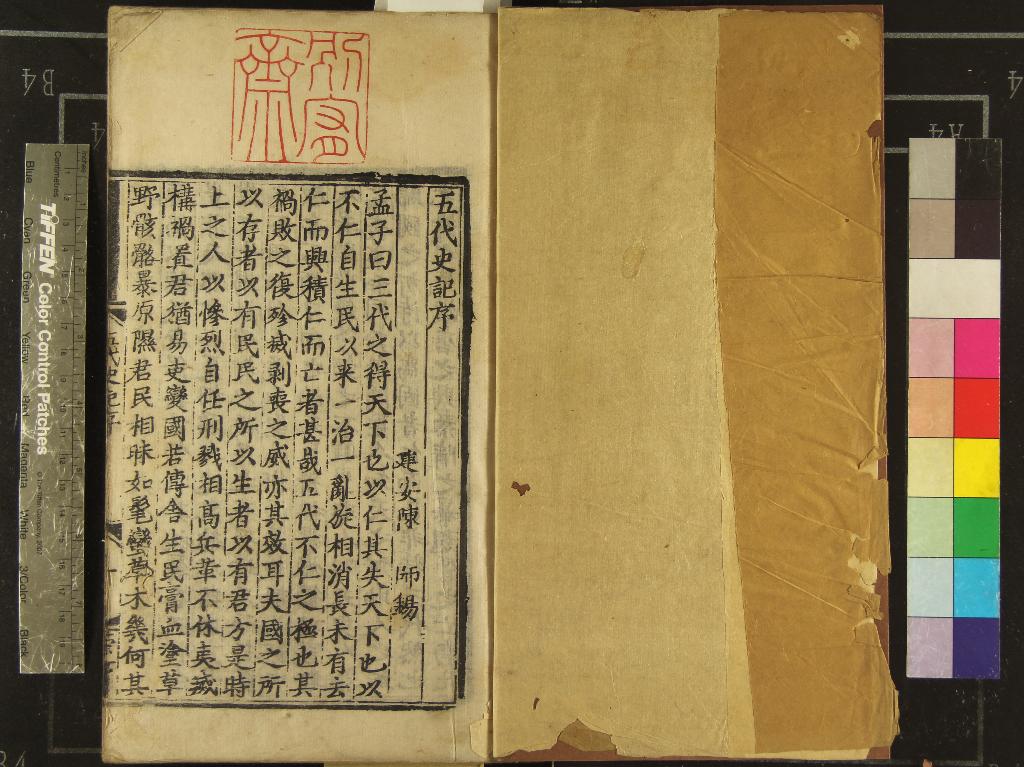 五代史記序
建安陳 師錫
孟子曰三代之得天下也以仁其失天下也以
不仁自生民以来一治一亂旋相消長未有去
仁而興積仁而亡者甚哉五代不仁之極也其
禍敗之復殄滅剥喪之威亦其效耳夫國之所
以存者以有民民之所以生者以有君方是時
上之人以慘烈自任刑戮相高兵革不休夷滅
構禍置君猶易吏變國若傳舎生民膏血塗草
野骸骼暴原隰君民相眎如髦蠻草木幾何其
五代史記序
齋
B4
A4
inches
Centimetres
TIFFEN Color Control Patches
© The Tiffen Company, 2007
Blue
Cyan
Green
Yellow
Red
Magenta
White
3/Color
Black